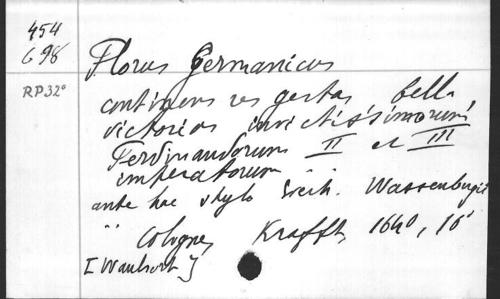 454
G 98
RP 32°
Florus Germanicus
continens res gestas bella
victorias invictissimorum
Ferdinandorum II et III
imperatorum
ante hac stylo Wassenbergii
" Cologne, Krafft, 1640, 16°